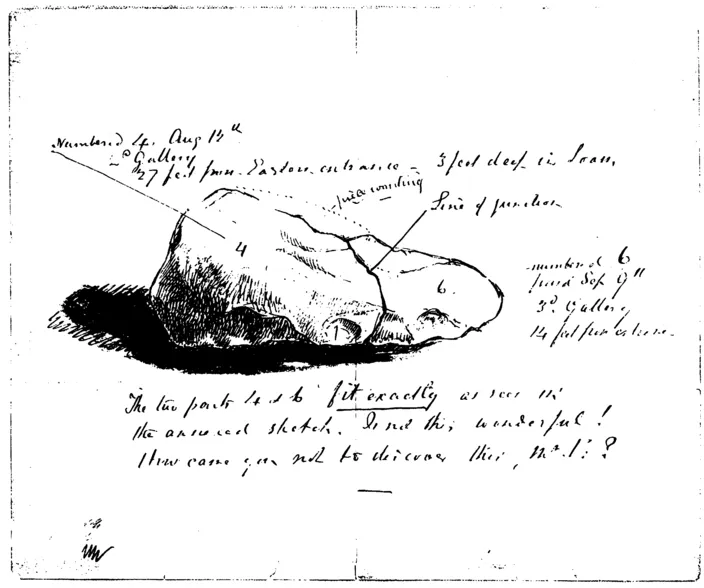 Numbered 4. Aug 12th
2d Gallery
27 feet from Eastern entrance – 3 feet deep in Loam,
piece wanting
Line of junction
4
6
numbered 6
found Sep 9th
3d. Gallery
14 feet from entrance
The two parts 4 & 6 fit exactly as seen in
the annexed sketch. Is not this wonderful!
How came you not to discover this,